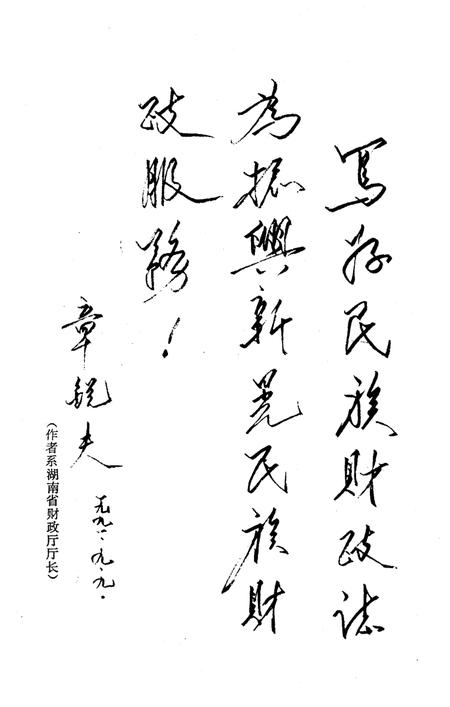 寫好民族財政誌
為振興新晃民族財
政服務！
章銳夫
一九九二.九.九.
（作者系湖南省财政厅厅长）